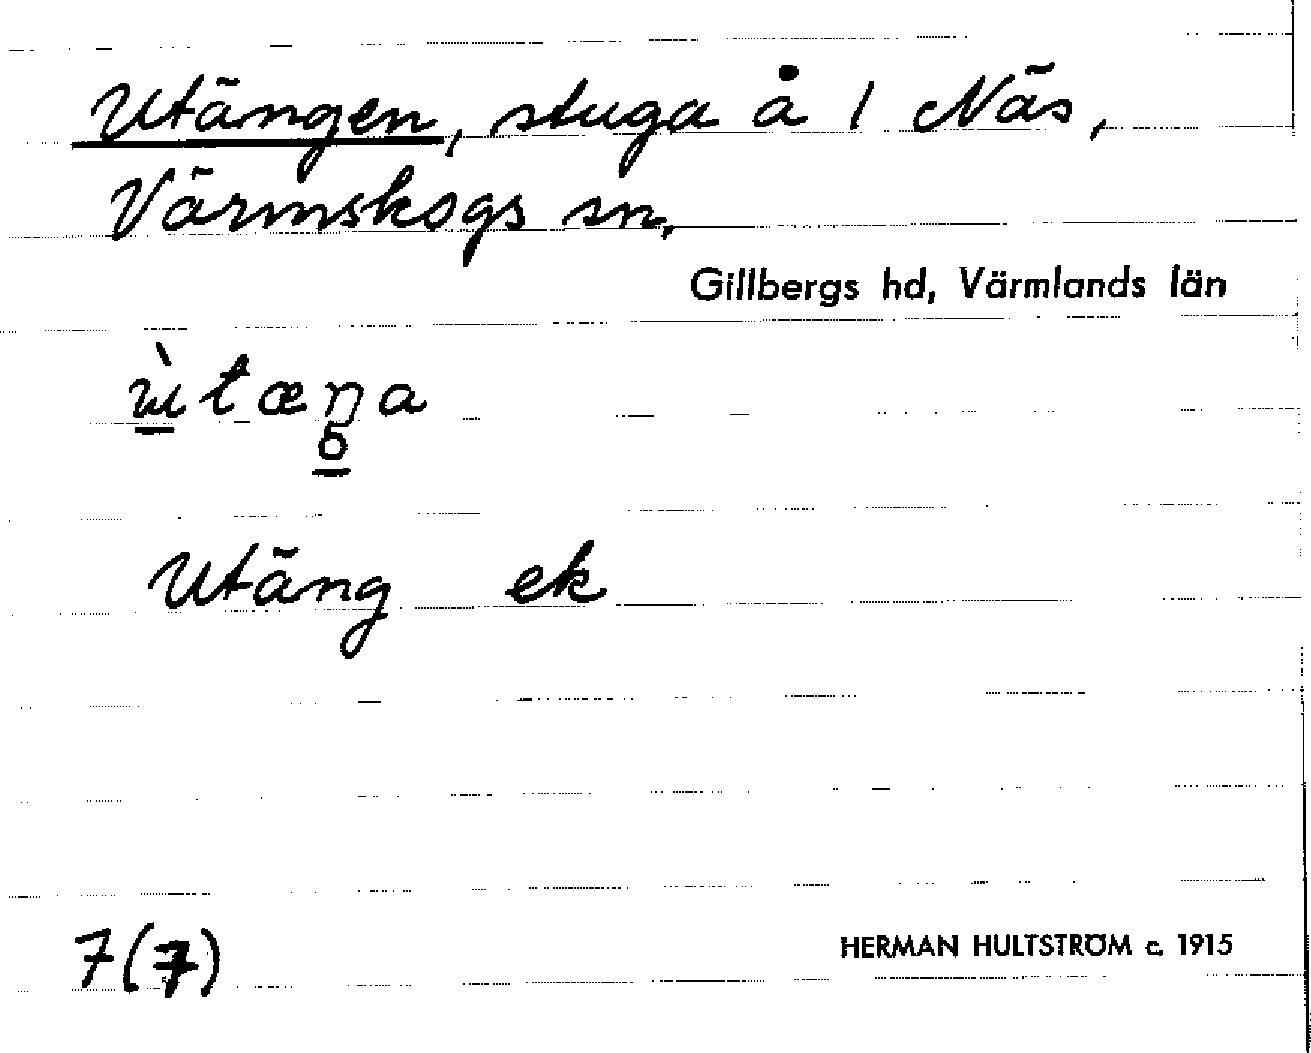 Utängen, stuga å 1 Näs,
Värmskogs sn,
Gillbergs hd, Värmlands län
ù̱tæŋa
6
Utäng ek
7(7)
HERMAN HULTSTRÖM c. 1915